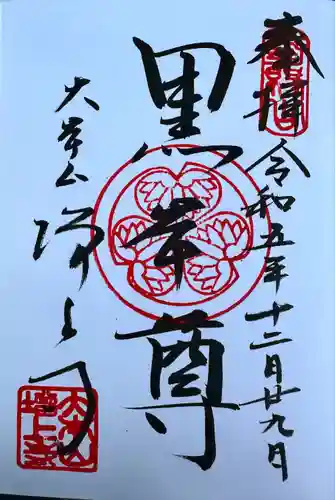 奉拝
令和五年十二月廿九日
黒本尊
大本山
増上寺
大本山
増上寺